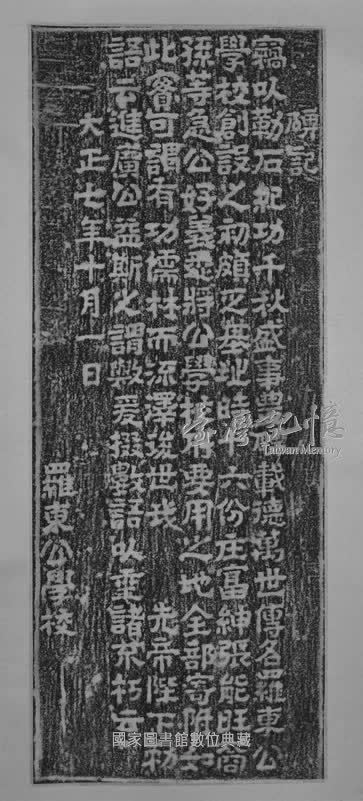 碑記
竊以勒石紀功千秋盛事典載德萬世傳名羅東公
學校創設之初頗乏基址時十六份庄富紳張能旺商
孫等急公好義悉將公學校所要用之地全部寄附如
此奢可謂有功儒林而流澤後世哉 先帝陛下勅
語云進廣公益斯之謂歟爰掇數語以垂諸不朽云
大正七年十月一日
羅東公學校
臺灣記憶
Taiwan Memory
國家圖書館數位典藏